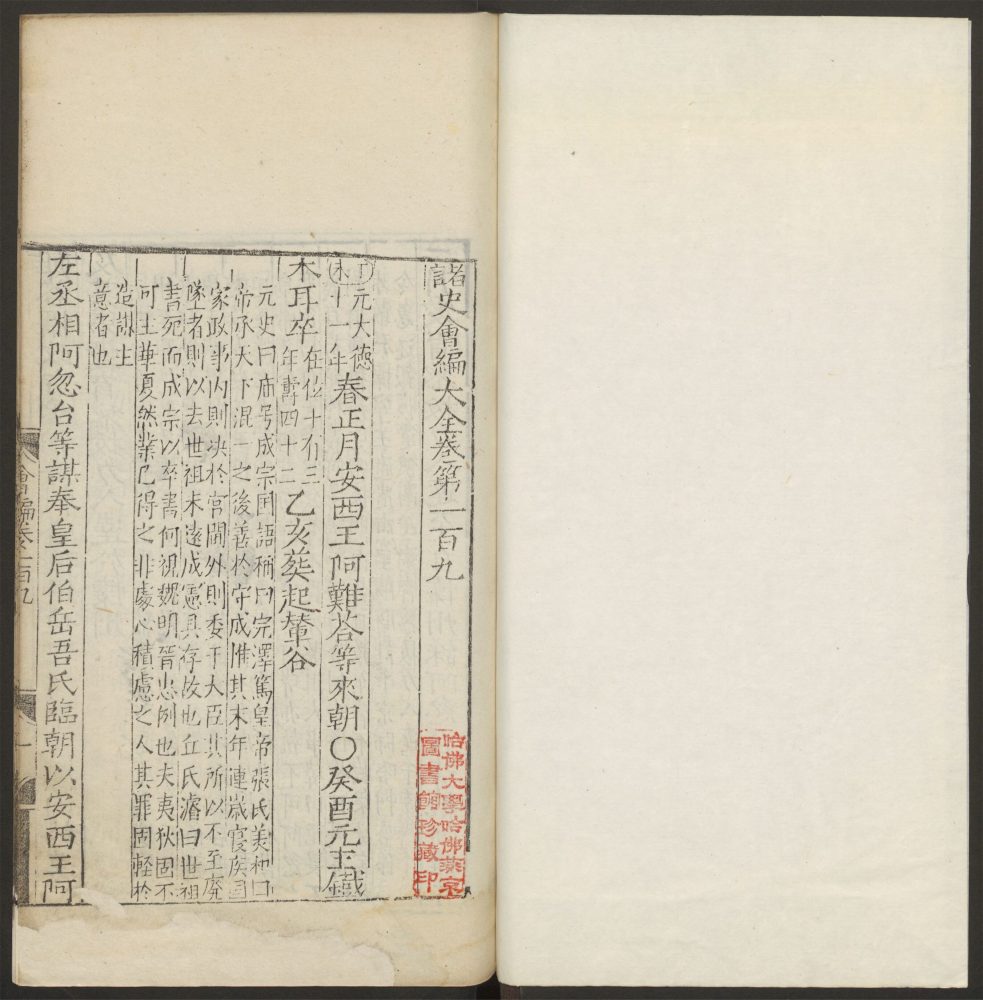 諸史會編大全卷第一百九
丁未元大德十一年春正月安西王阿難荅等來朝〇癸酉元主鐵
木耳卒在位十有三年壽四十二乙亥葬起輦谷
元史曰庙号成宗国語稱曰完澤篤皇帝張氏美和曰
帝承天下混一之後善於守成惟其末年連歲寝疾国
家政事内則决於宫闈外則委于大臣其所以不至廃
墜者則以去世祖未遠成憲具存故也丘氏濬曰世祖
書死而成宗以卒書何視魏明晋恵例也夫夷狄固不
可主華夏然業已得之非處心積慮之人其罪固輕於
造謀主
意者也
左丞相阿忽台等謀奉皇后伯岳吾氏臨朝以安西王阿
會編卷一百九
一
哈佛大學哈佛燕京
圖書館珍藏印